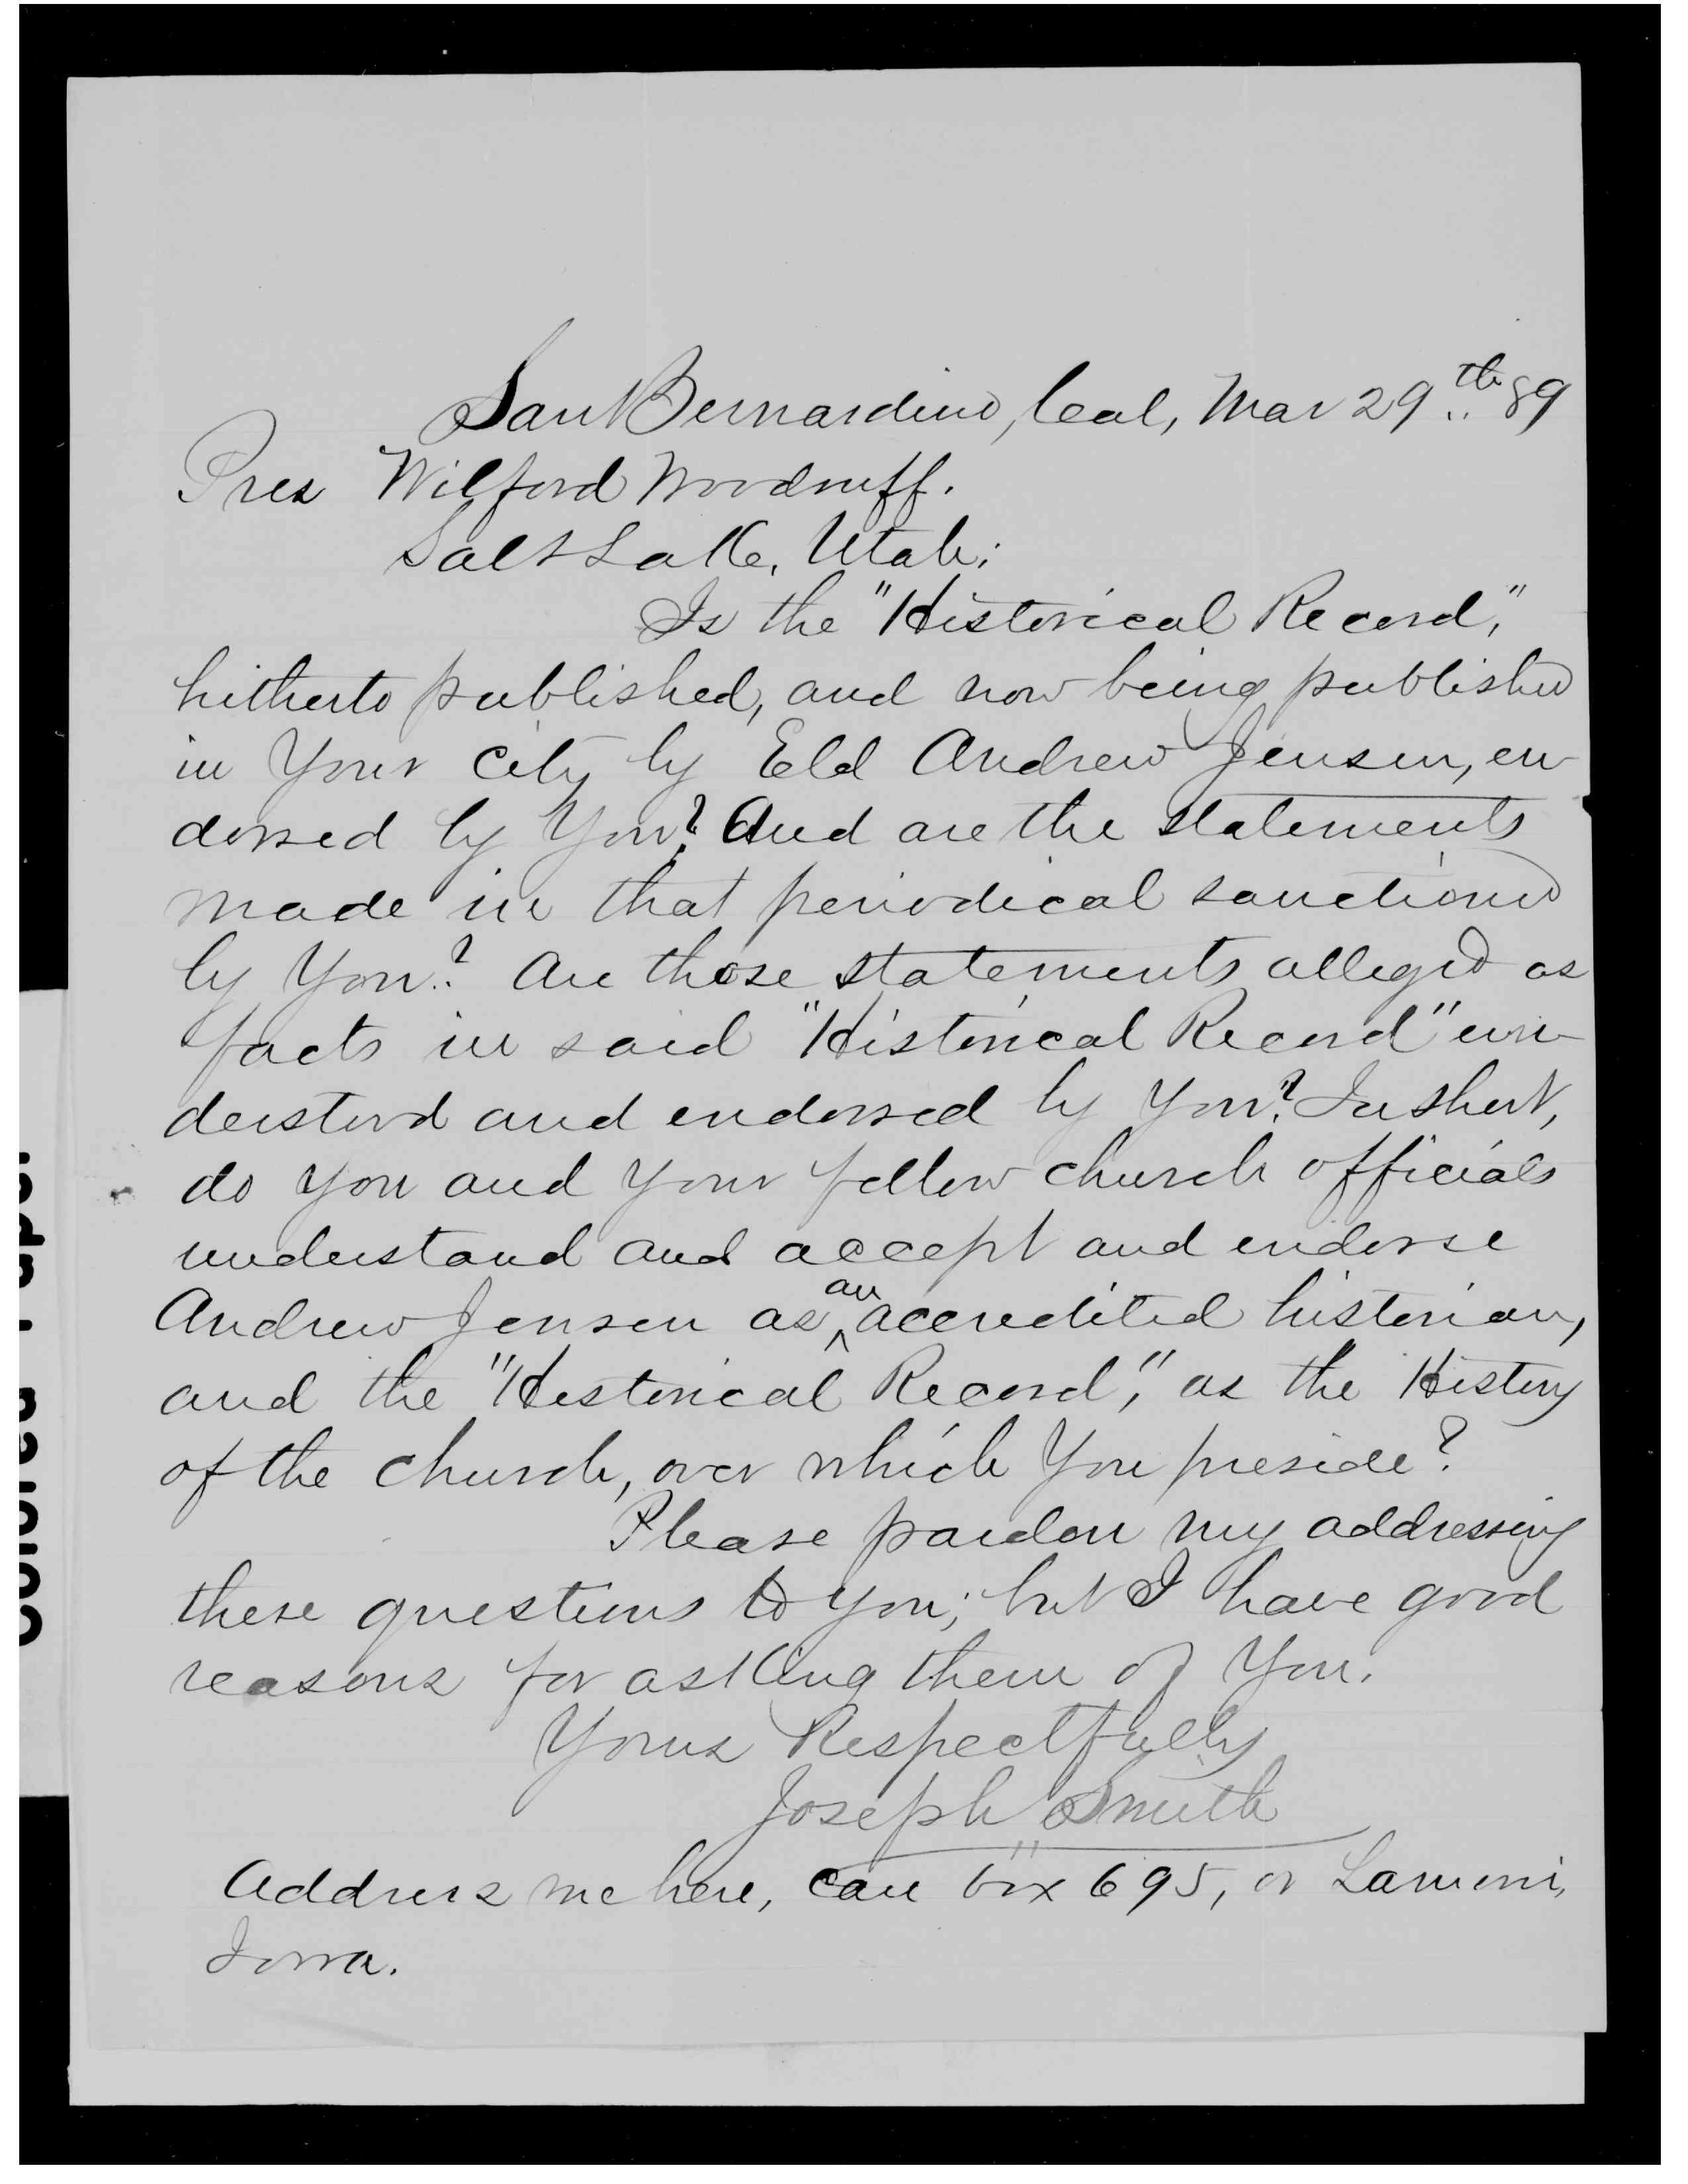 San Bernardino, Cal, Mar 29th 89
Pres Wilford Woodruff.
Salt Lake, Utah;
Is the "Historical Record,"
hitherto published, and now being published
in Your city by Eld Andrew Jensen, en-
dorsed by You? And are the statements
made in that periodical sanctioned
by You? Are those statements alleged as
facts in said "Historical Record" un-
derstood and endorsed by You? In short,
do You and Your fellow church officials
understand and accept and endorse
Andrew Jensen as an accredited historian,
and the "Historical Record," as the History
of the church, over which You preside?
Please pardon my addressing
these questions to You; but I have good
reasons for asking them of You.
Yours Respectfully
Joseph Smith
Address me here, care box 695, or Lamoni,
Iowa.
Colored Paper